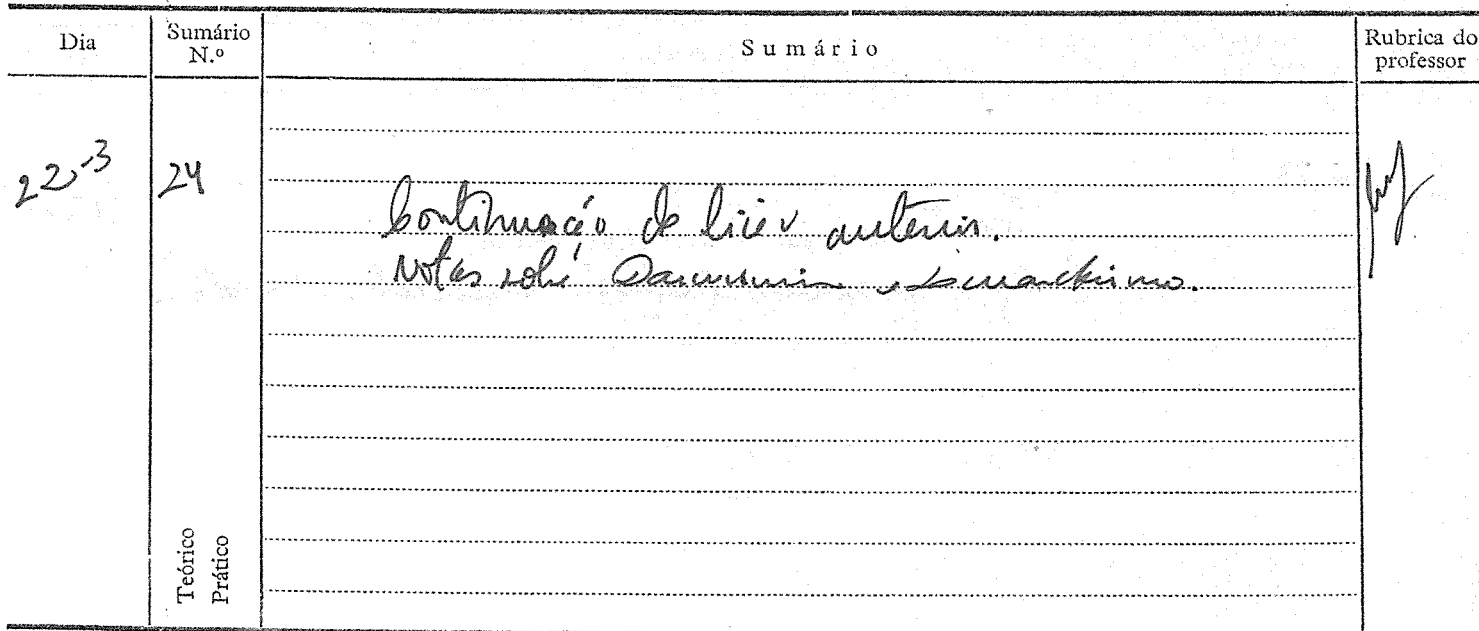 Dia
Sumário N.º
Sumário
Rubrica do professor
22-3
24
Continuação da lição anterior.
Notas sobre Darwinismo e Lamarckismo.
Teórico
Prático